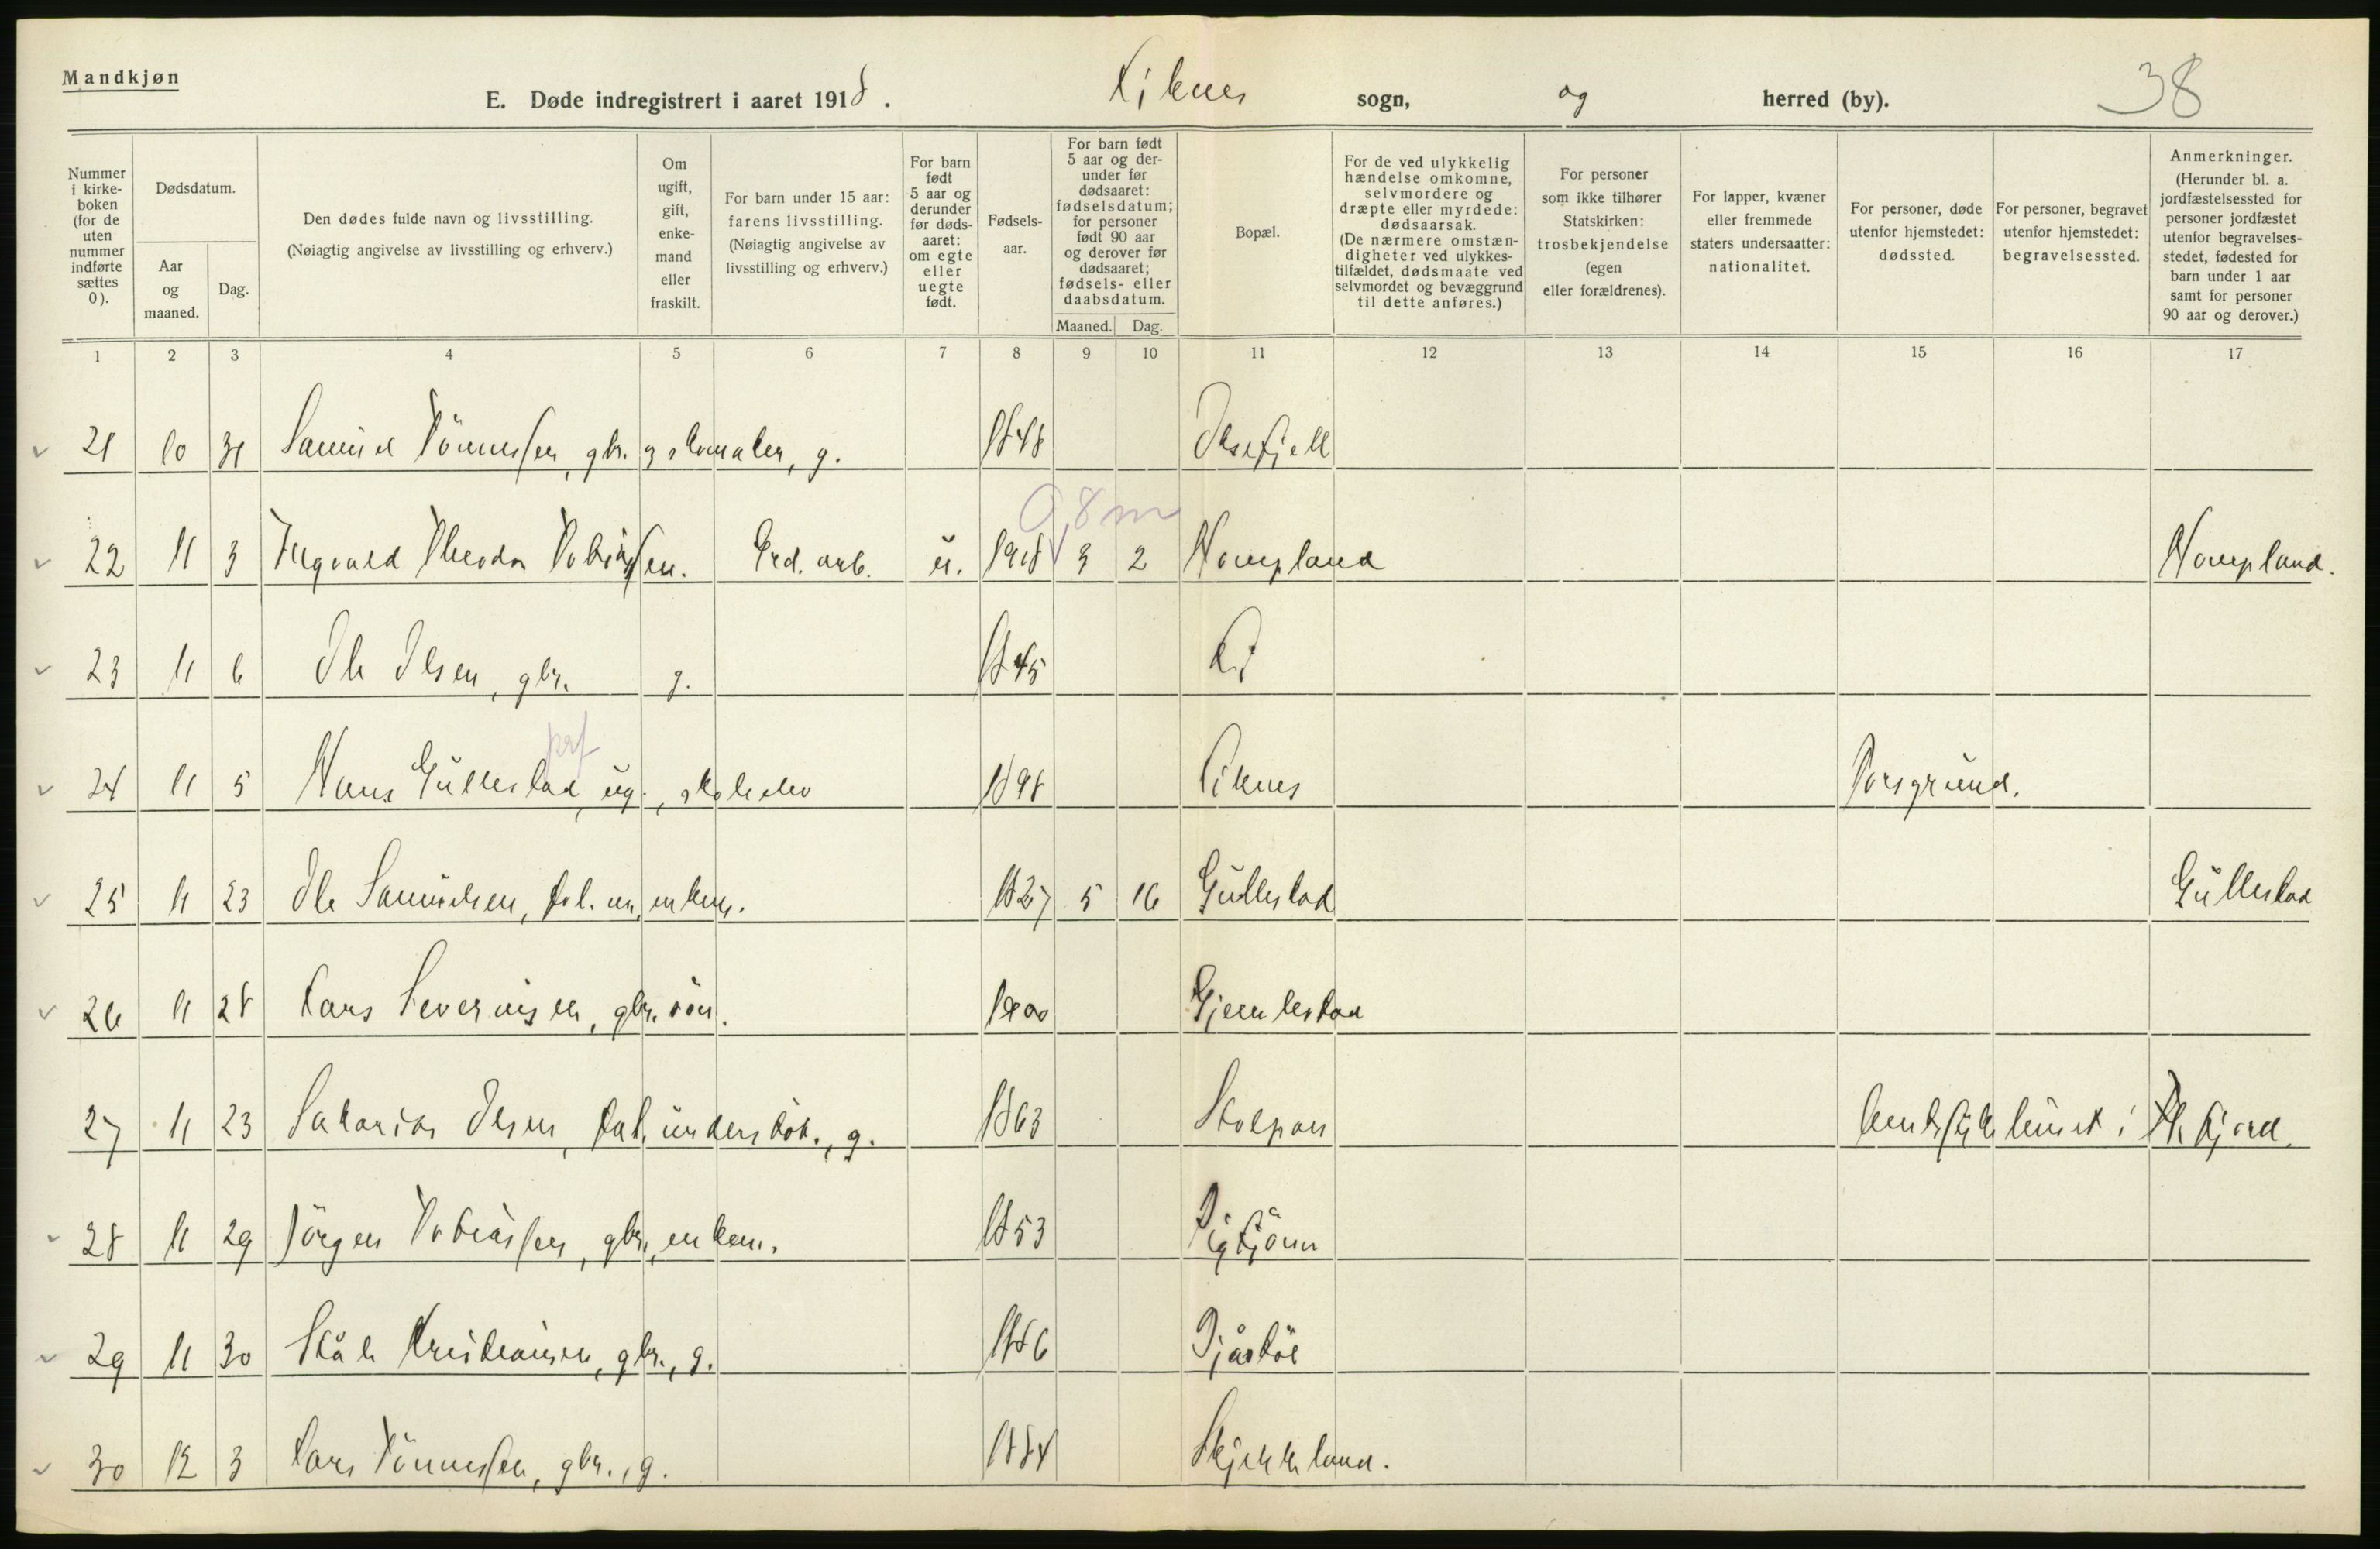 Mandkjøn
E. Døde indregistrert i aaret 1918. Liknes sogn, og herred (by). 38
Nummer i kirkeboken (for de uten nummer indførte sættes 0).
Dødsdatum.
Aar og maaned.
Dag.
Den dødes fulde navn og livsstilling. (Nøiagtig angivelse av livsstilling og erhverv.)
Om ugift, gift, enkemand eller fraskilt.
For barn under 15 aar: farens livsstilling. (Nøiagtig angivelse av livsstilling og erhverv.)
For barn født 5 aar og derunder før dødsaaret: om egte eller uegte født.
Fødselsaar.
For barn født 5 aar og derunder før dødsaaret: fødselsdatum; for personer født 90 aar og derover før dødsaaret; fødsels- eller daabsdatum.
Maaned. Dag.
Bopæl.
For de ved ulykkelig hændelse omkomne, selvmordere og dræpte eller myrdede: dødsaarsak. (De nærmere omstændigheter ved ulykkestilfældet, dødsmaate ved selvmordet og bevæggrund til dette anføres.)
For personer som ikke tilhører Statskirken: trosbekjendelse (egen eller forældrenes).
For lapper, kvæner eller fremmede staters undersaatter: nationalitet.
For personer, døde utenfor hjemstedet: dødssted.
For personer, begravet utenfor hjemstedet: begravelsessted.
Anmerkninger. (Herunder bl. a. jordfæstelsessted for personer jordfæstet utenfor begravelsesstedet, fødested for barn under 1 aar samt for personer 90 aar og derover.)
1 2 3 4 5 6 7 8 9 10 11 12 13 14 15 16 17
21 10 31 Samuel Tönnessen, gbr. g. 1848
0,8 m
22 11 3 Theodor Tobiassen. Grd. arb. u. 1918 3 2
23 11 6 Ole Olsen, gbr. g. 1845
24 11 5 Hans Gullestad, ug., skoleelev 1898 Liknes Porsgrund.
25 11 23 Ole Samuelsen, enkem. 1827 5 16 Gullestad Gullestad
26 11 28 Lars Severinsen, gbr. sön. 1900 Gjemlestad
27 11 23 Sakarias Olsen, fat. understöt., g. 1863 Stolpan
28 11 29 Jörgen Tobiassen, gbr., enkem. 1853
29 11 30 Ståle Kristiansen, gbr., g. 1886
30 12 3 Lars Tönnessen, gbr., g. 1884